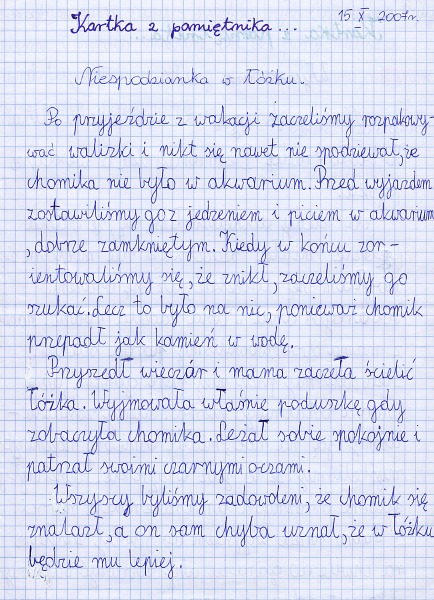 Kartka z pamiętnika...
15.X 2007r.
Niespodzianka w łóżku.
Po przyjeździe z wakacji zaczeliśmy rozpakowy-
wać walizki i nikt się nawet nie spodziewał, że
chomika nie było w akwarium. Przed wyjazdem
zostawiliśmy go z jedzeniem i piciem w akwarium
, dobrze zamkniętym. Kiedy w końcu zor-
ientowaliśmy się, że znikł, zaczeliśmy go
szukać. Lecz to było na nic, ponieważ chomik
przepadł jak kamień w wodę.
Przyszedł wieczór i mama zaczeła ścielić
łóżka. Wyjmowała właśnie poduszkę gdy
zobaczyła chomika. Leżał sobie spokojnie i
patrzał swoimi czarnymi oczami.
Wszyscy byliśmy zadowoleni, że chomik się
znalazł, a on sam chyba uznał, że w łóżku
będzie mu lepiej.